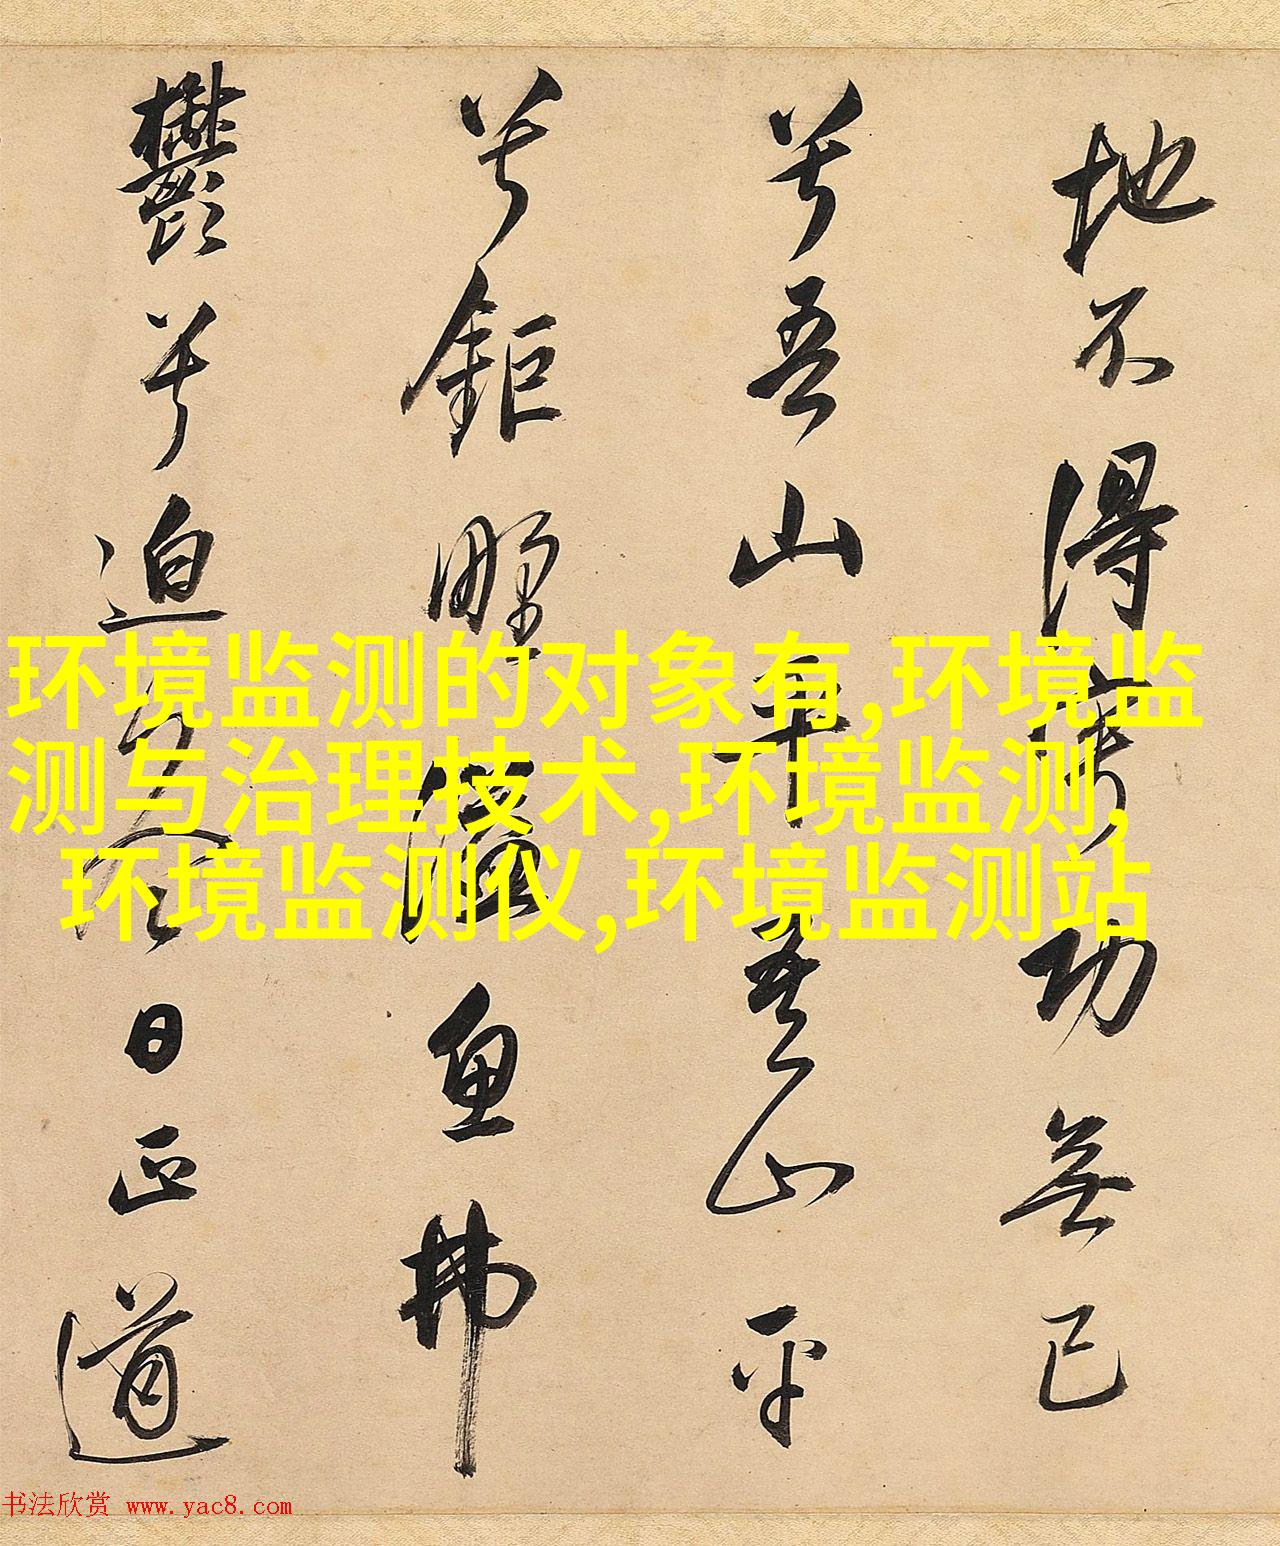 地不得寧功無已
兮吾山平吾山平
兮鉅野溢魚拂
鬱兮迫冬日正道
环境监测的对象有,环境监
测与治理技术,环境监测,
环境监测仪,环境监测站
书法欣赏 www.yac8.com